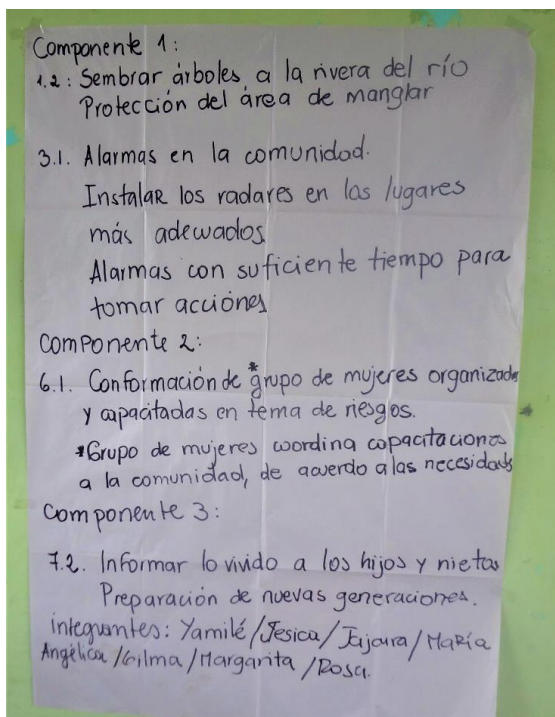 Componente 1:
1.2: Sembrar árboles a la rivera del río
Protección del área de manglar
3.1. Alarmas en la comunidad.
Instalar los radares en los lugares
más adecuados
Alarmas con suficiente tiempo para
tomar acciones
Componente 2:
6.1. Conformación de *grupo de mujeres organizadas
y capacitadas en tema de riesgos.
*Grupo de mujeres coordina capacitaciones
a la comunidad, de acuerdo a las necesidades
Componente 3:
7.2. Informar lo vivido a los hijos y nietos
Preparación de nuevas generaciones.
integrantes: Yamilé/Jesica/Jajaira/María
Angélica/Gilma/Margarita/Rosa.